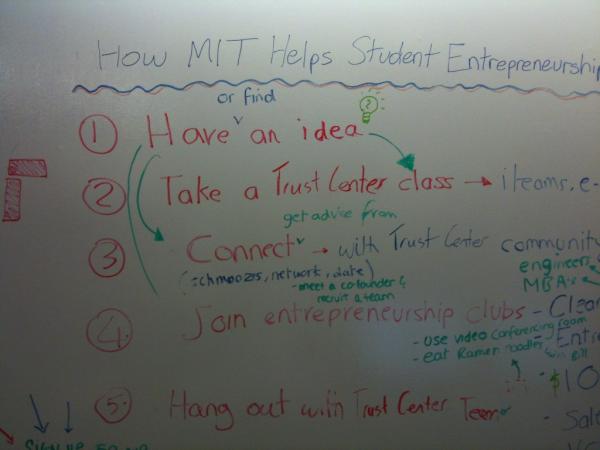 How MIT Helps Student Entrepreneurship
or find
1 Have v an idea
2 Take a Trust Center class → iteams, e-
get advice from
3 Connect → with Trust Center community
(schmoozes, network, date)
engineers
- meet a cofounder &
MBAs
recruit a team
4. Join entrepreneurship clubs - Clean
- use video conferencing room
- Entre
- eat Ramen noodles with Bill
$10
5. Hang out with Trust Center Team
- Sal